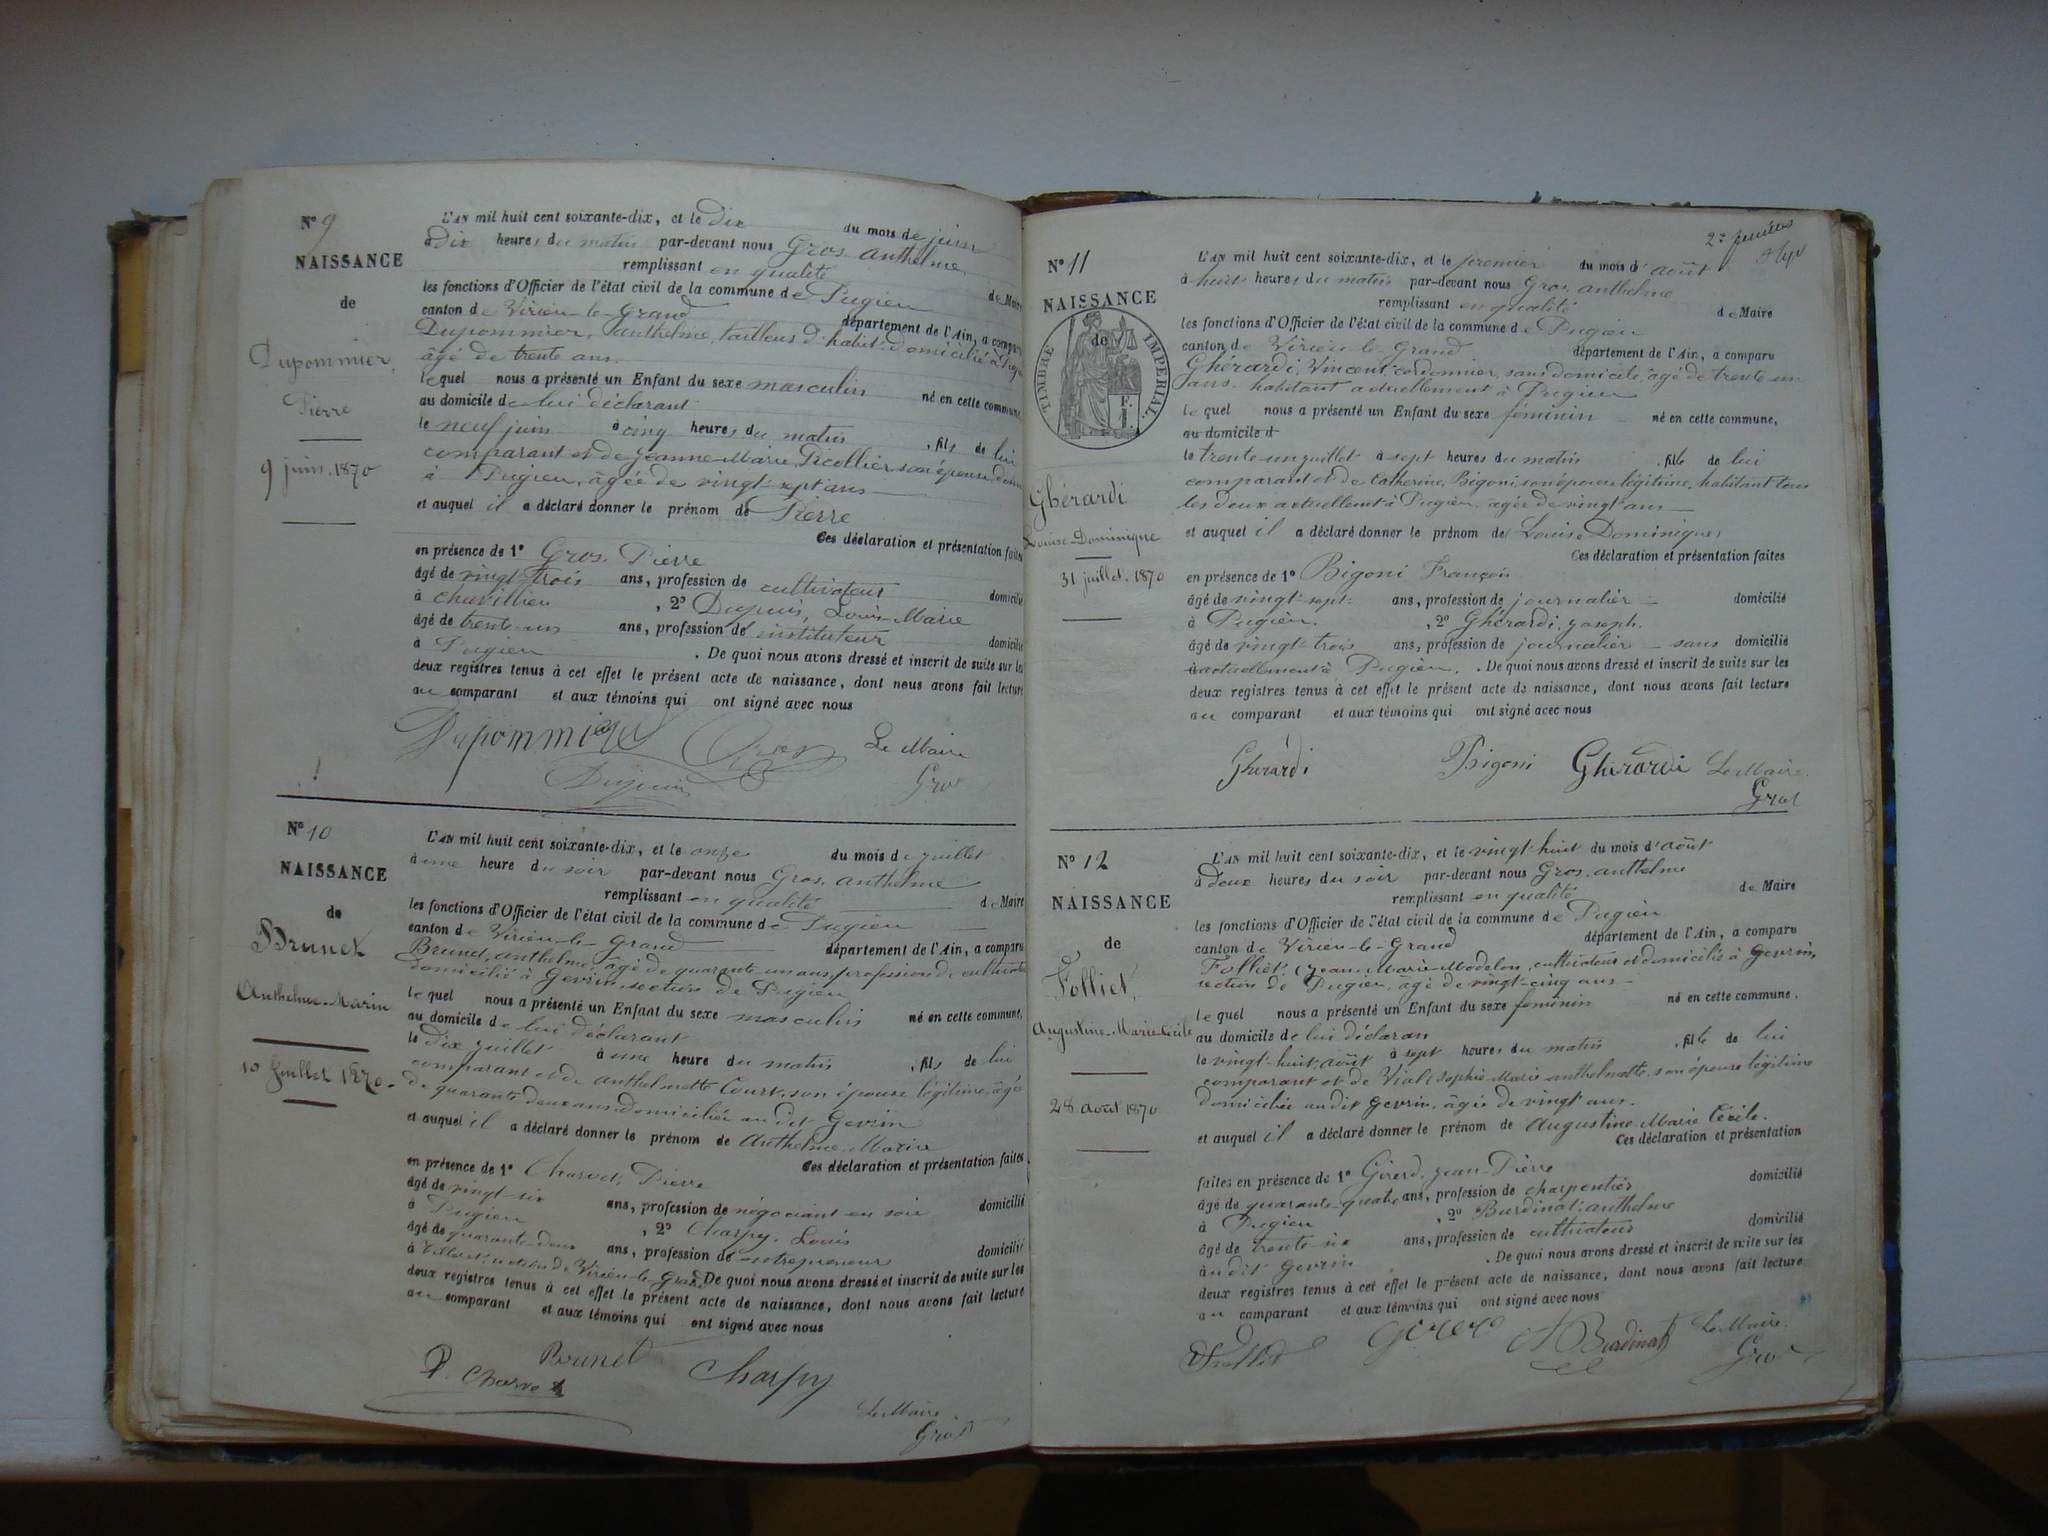 N° 9
NAISSANCE
de
Dupommier,
Pierre
9 juin. 1870
L'AN mil huit cent soixante-dix, et le dix du mois de juin
à dix heures du matin par-devant nous Gros anthelme
remplissant en qualité de Maire
les fonctions d'Officier de l'état civil de la commune de Pugieu
canton de Virieu-le-Grand département de l'Ain, a comparu
Dupommier, anthelme, tailleur d'habit, domicilié à
âgé de trente ans.
lequel nous a présenté un Enfant du sexe masculin né en cette commune,
au domicile de lui déclarant
le neuf juin à cinq heures du matin, fils de lui
comparant et de Jeanne-Marie Picollier son épouse
à Pugieu, âgée de vingt-sept ans
et auquel il a déclaré donner le prénom de Pierre
Ces déclaration et présentation faites
en présence de 1° Gros, Pierre
âgé de vingt-trois ans, profession de cultivateur domicilié
à chavillieu, 2° Dupuis, Louis-Marie
âgé de trente-un ans, profession de instituteur domicilié
à Pugieu. De quoi nous avons dressé et inscrit de suite sur les
deux registres tenus à cet effet le présent acte de naissance, dont nous avons fait lecture
au comparant et aux témoins qui ont signé avec nous
Dupommier Gros Le Maire
Dupuis Gros
N° 10
NAISSANCE
de
Brunet
Anthelme-Marin
10 Juillet 1870
L'AN mil huit cent soixante-dix, et le onze du mois de juillet
à une heure du soir par-devant nous Gros, anthelme
remplissant en qualité de Maire
les fonctions d'Officier de l'état civil de la commune de Pugieu
canton de Virieu-le-Grand département de l'Ain, a comparu
Brunet, anthelme, âgé de quarante-un ans, profession de cultivateur
domicilié à Gevrin, section de Pugieu
lequel nous a présenté un Enfant du sexe masculin né en cette commune,
au domicile de lui déclarant
le dix juillet à une heure du matin, fils de lui
comparant et de anthelmette Court, son épouse légitime, âgée
de quarante-deux ans, domiciliée au dit Gevrin
et auquel il a déclaré donner le prénom de Anthelme-Marin
Ces déclaration et présentation faites
en présence de 1° Charvet, Pierre
âgé de vingt-six ans, profession de négociant en domicilié
à Pugieu, 2° Charpy, Louis
âgé de quarante-deux ans, profession de entrepreneur domicilié
à section de Virieu-le-Grand. De quoi nous avons dressé et inscrit de suite sur les
deux registres tenus à cet effet le présent acte de naissance, dont nous avons fait lecture
au comparant et aux témoins qui ont signé avec nous
P. Charvet Brunet Charpy
Le Maire
Gros
N° 11
NAISSANCE
de
TIMBRE IMPERIAL.
Ghérardi
Louise-Dominique
31 juillet. 1870
L'AN mil huit cent soixante-dix, et le premier du mois d'août
à huit heures du matin par-devant nous Gros, anthelme
remplissant en qualité de Maire
les fonctions d'Officier de l'état civil de la commune de Pugieu
canton de Virieu-le-Grand département de l'Ain, a comparu
Ghérardi, Vincent, cordonnier, sans domicile, âgé de trente-un
ans, habitant actuellement à Pugieu
lequel nous a présenté un Enfant du sexe féminin né en cette commune,
au domicile d
le trente-un juillet à sept heures du matin, fille de lui
comparant et de Catherine, Bigoni, son épouse légitime, habitant tous
les deux actuellement à Pugieu, âgée de vingt ans
et auquel il a déclaré donner le prénom de Louise Dominique
Ces déclaration et présentation faites
en présence de 1° Bigoni François
âgé de vingt-sept ans, profession de journalier domicilié
à Pugieu, 2° Ghérardi, Joseph.
âgé de vingt-trois ans, profession de journalier sans domicilié
à actuellement à Pugieu. De quoi nous avons dressé et inscrit de suite sur les
deux registres tenus à cet effet le présent acte de naissance, dont nous avons fait lecture
au comparant et aux témoins qui ont signé avec nous
Ghérardi Bigoni Ghirardi Le Maire
Gros
N° 12
NAISSANCE
de
Folliet,
Augustine-Marie-Cécile
28 août 1870
L'AN mil huit cent soixante-dix, et le vingt-huit du mois d'août
à deux heures du soir par-devant nous Gros, anthelme
remplissant en qualité de Maire
les fonctions d'Officier de l'état civil de la commune de Pugieu
canton de Virieu-le-Grand département de l'Ain, a comparu
Folliet, Jean-Marie-Modelon, cultivateur et domicilié à Gevrin,
section de Pugieu, âgé de vingt-cinq ans
lequel nous a présenté un Enfant du sexe féminin né en cette commune,
au domicile de lui déclaran
le vingt-huit août à sept heures du matin, fille de lui
comparant et de Vial, Sophie-Marie-anthelmette, son épouse légitime
domiciliée au dit Gevrin, âgée de vingt ans.
et auquel il a déclaré donner le prénom de Augustine Marie Cécile.
Ces déclaration et présentation
faites en présence de 1° Girerd, Jean-Pierre
âgé de quarante-quatre ans, profession de charpentier domicilié
à Pugieu, 2° Burdinat, anthelme
âgé de trente-six ans, profession de cultivateur domicilié
au dit Gevrin. De quoi nous avons dressé et inscrit de suite sur les
deux registres tenus à cet effet le présent acte de naissance, dont nous avons fait lecture
au comparant et aux témoins qui ont signé avec nous
Folliet Girerd A Burdinat Le Maire
Gros